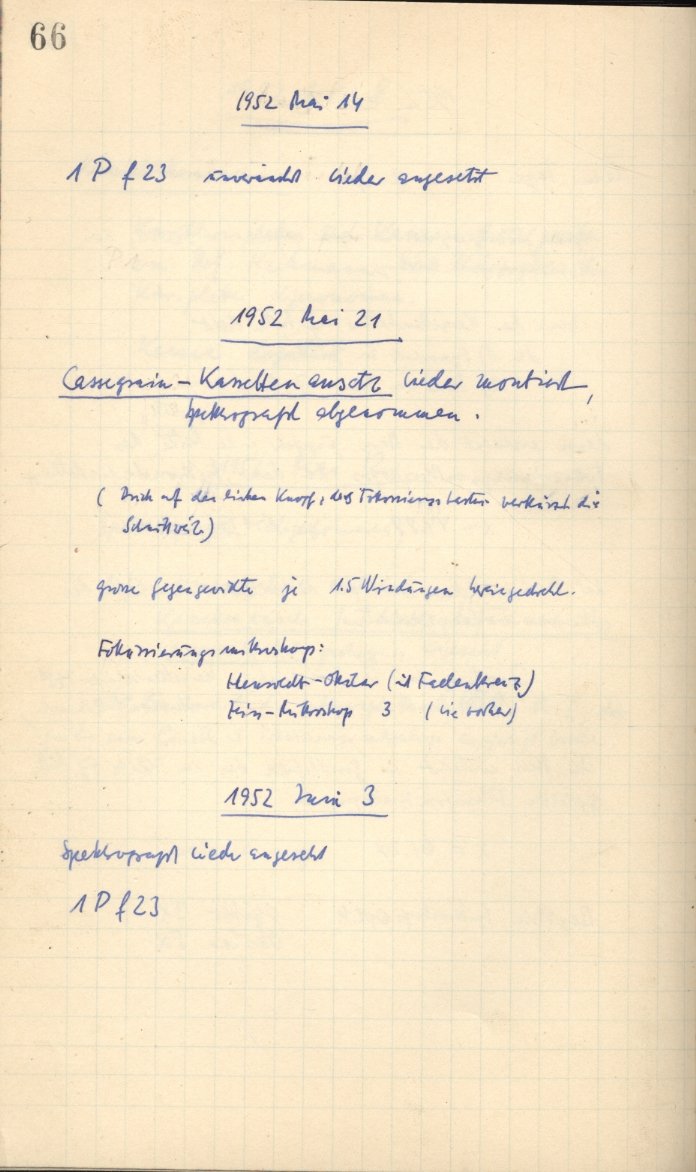 66
1952 Mai 14
1 P f 23 unverändert wieder angesetzt
1952 Mai 21
Cassegrain-Kassettenansatz wieder montiert,
Spektrograph abgenommen.
(Druck auf den linken Knopf des Fokussierungstasters verkürzt die
Schnittweite)
grosse Gegengewichte je 1.5 Windungen hereingedreht.
Fokussierungsmikroskop:
Hensoldt-Okular (mit Fadenkreuz)
Zeiss-Mikroskop 3 (wie vorher)
1952 Juni 3
Spektrograph wieder angesetzt
1 P f 23